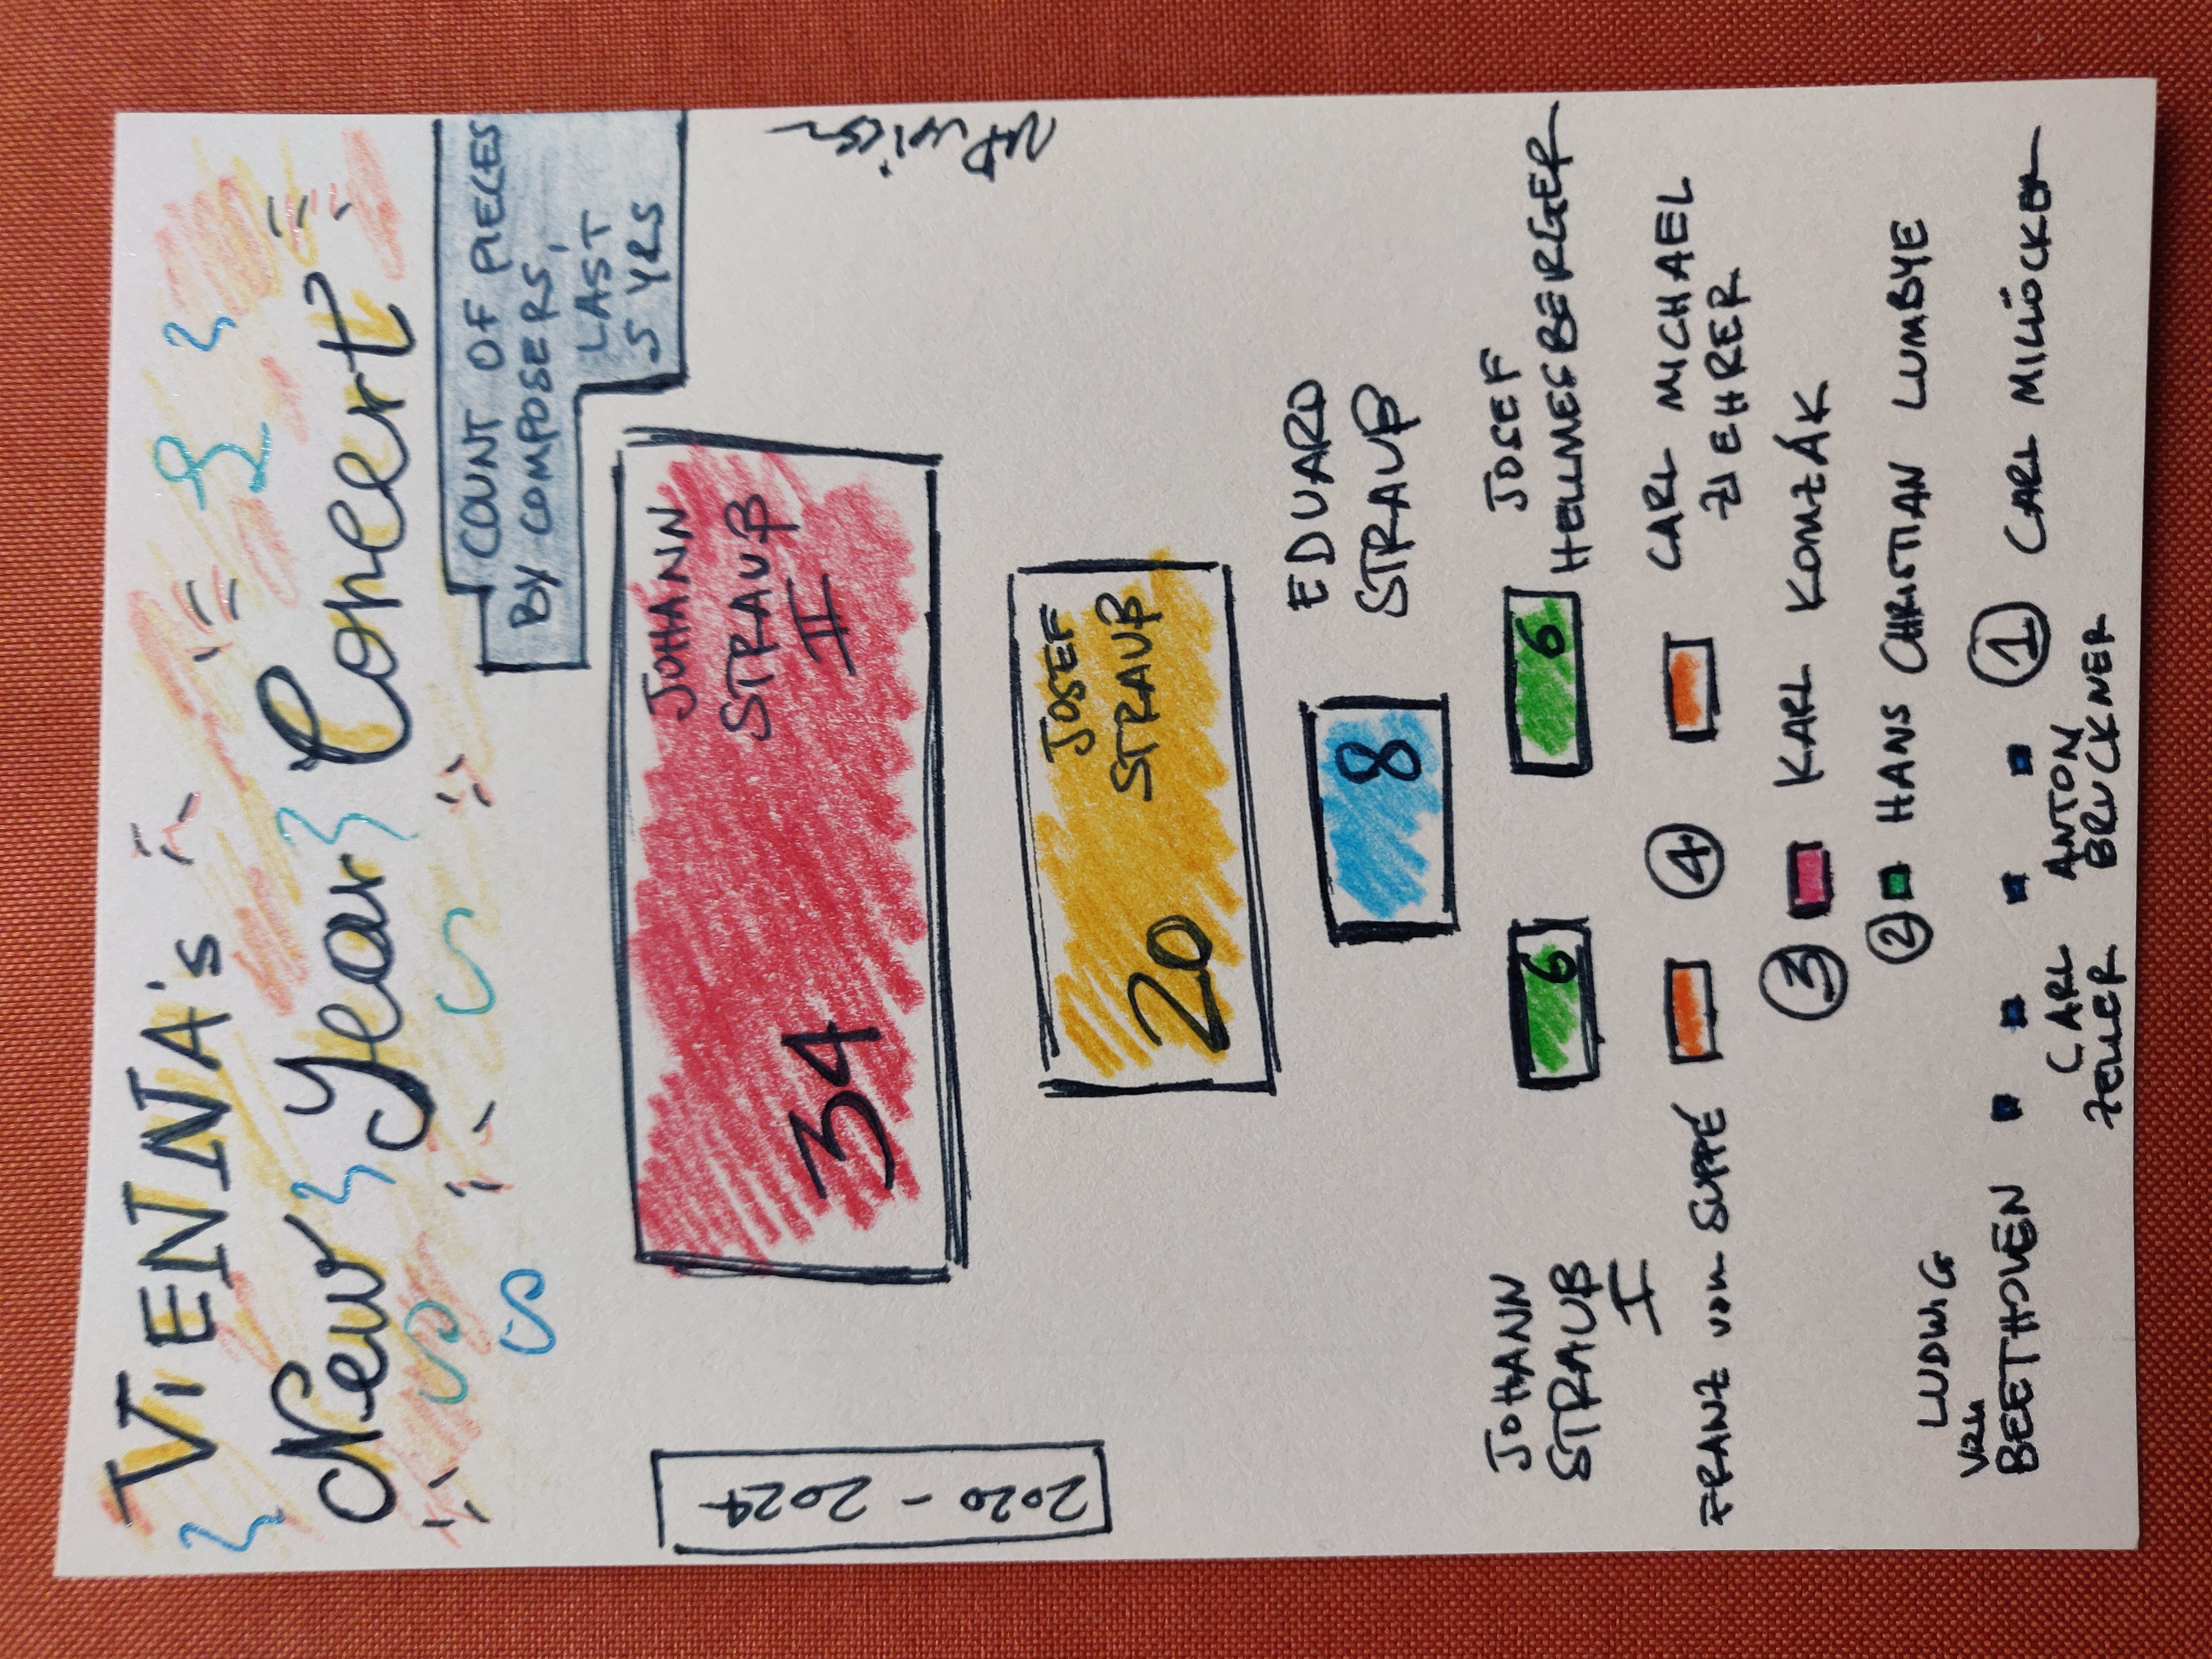 VIENNA's
New Year Concert
COUNT OF PIECES
BY COMPOSERS,
LAST
5 YRS
2020 - 2024
JOHANN
STRAUß
II
34
JOSEF
STRAUß
20
EDUARD
STRAUß
8
JOHANN
STRAUß
I
6
6
JOSEF
HELLMESBERGER
FRANZ von SUPPÉ
4
CARL MICHAEL
ZIEHRER
3
KARL KOMZÁK
2
HANS CHRISTIAN LUMBYE
LUDWIG
von
BEETHOVEN
CARL
ZELLER
ANTON
BRUCKNER
1
CARL MILLÖCKER